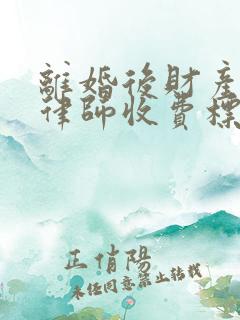 離婚後財產
律師收費標
王俏陽
未經同意禁止轉載